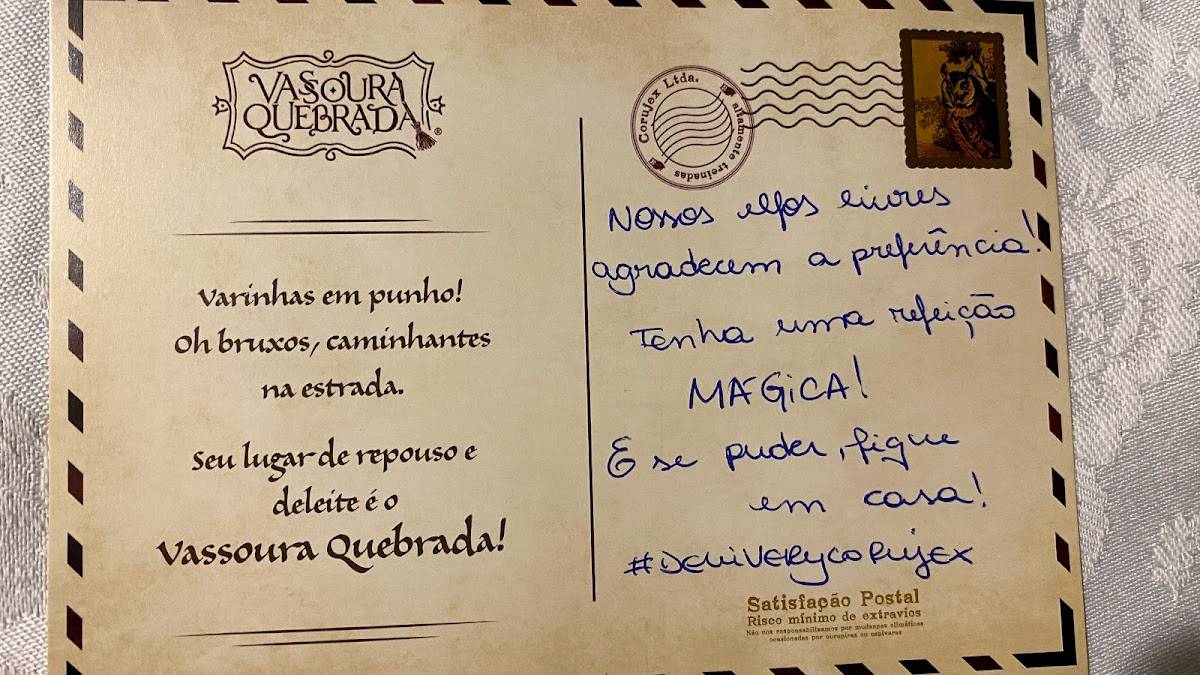 VASSOURA
QUEBRADA
®
Varinhas em punho!
Oh bruxos, caminhantes
na estrada.
Seu lugar de repouso e
deleite é o
Vassoura Quebrada!
Corujex Ltda.
altamente treinadas
Nossos elfos livres
agradecem a preferência!
Tenha uma refeição
MÁGICA!
E se puder, fique
em casa!
#DELIVERYCORUJEX
Satisfação Postal
Risco mínimo de extravios
Não nos responsabilizamos por mudanças climáticas
ocasionadas por curupiras ou caiporas